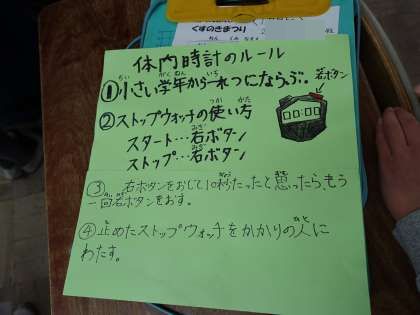 くすのきまつり
体内時計のルール
①小さい学年から一れつにならぶ。
右ボタン
②ストップウォッチの使い方
00:00
スタート…右ボタン
ストップ…右ボタン
③ 右ボタンをおして10秒たったと思ったら、もう
一回右ボタンをおす。
④止めたストップウォッチをかかりの人に
わたす。